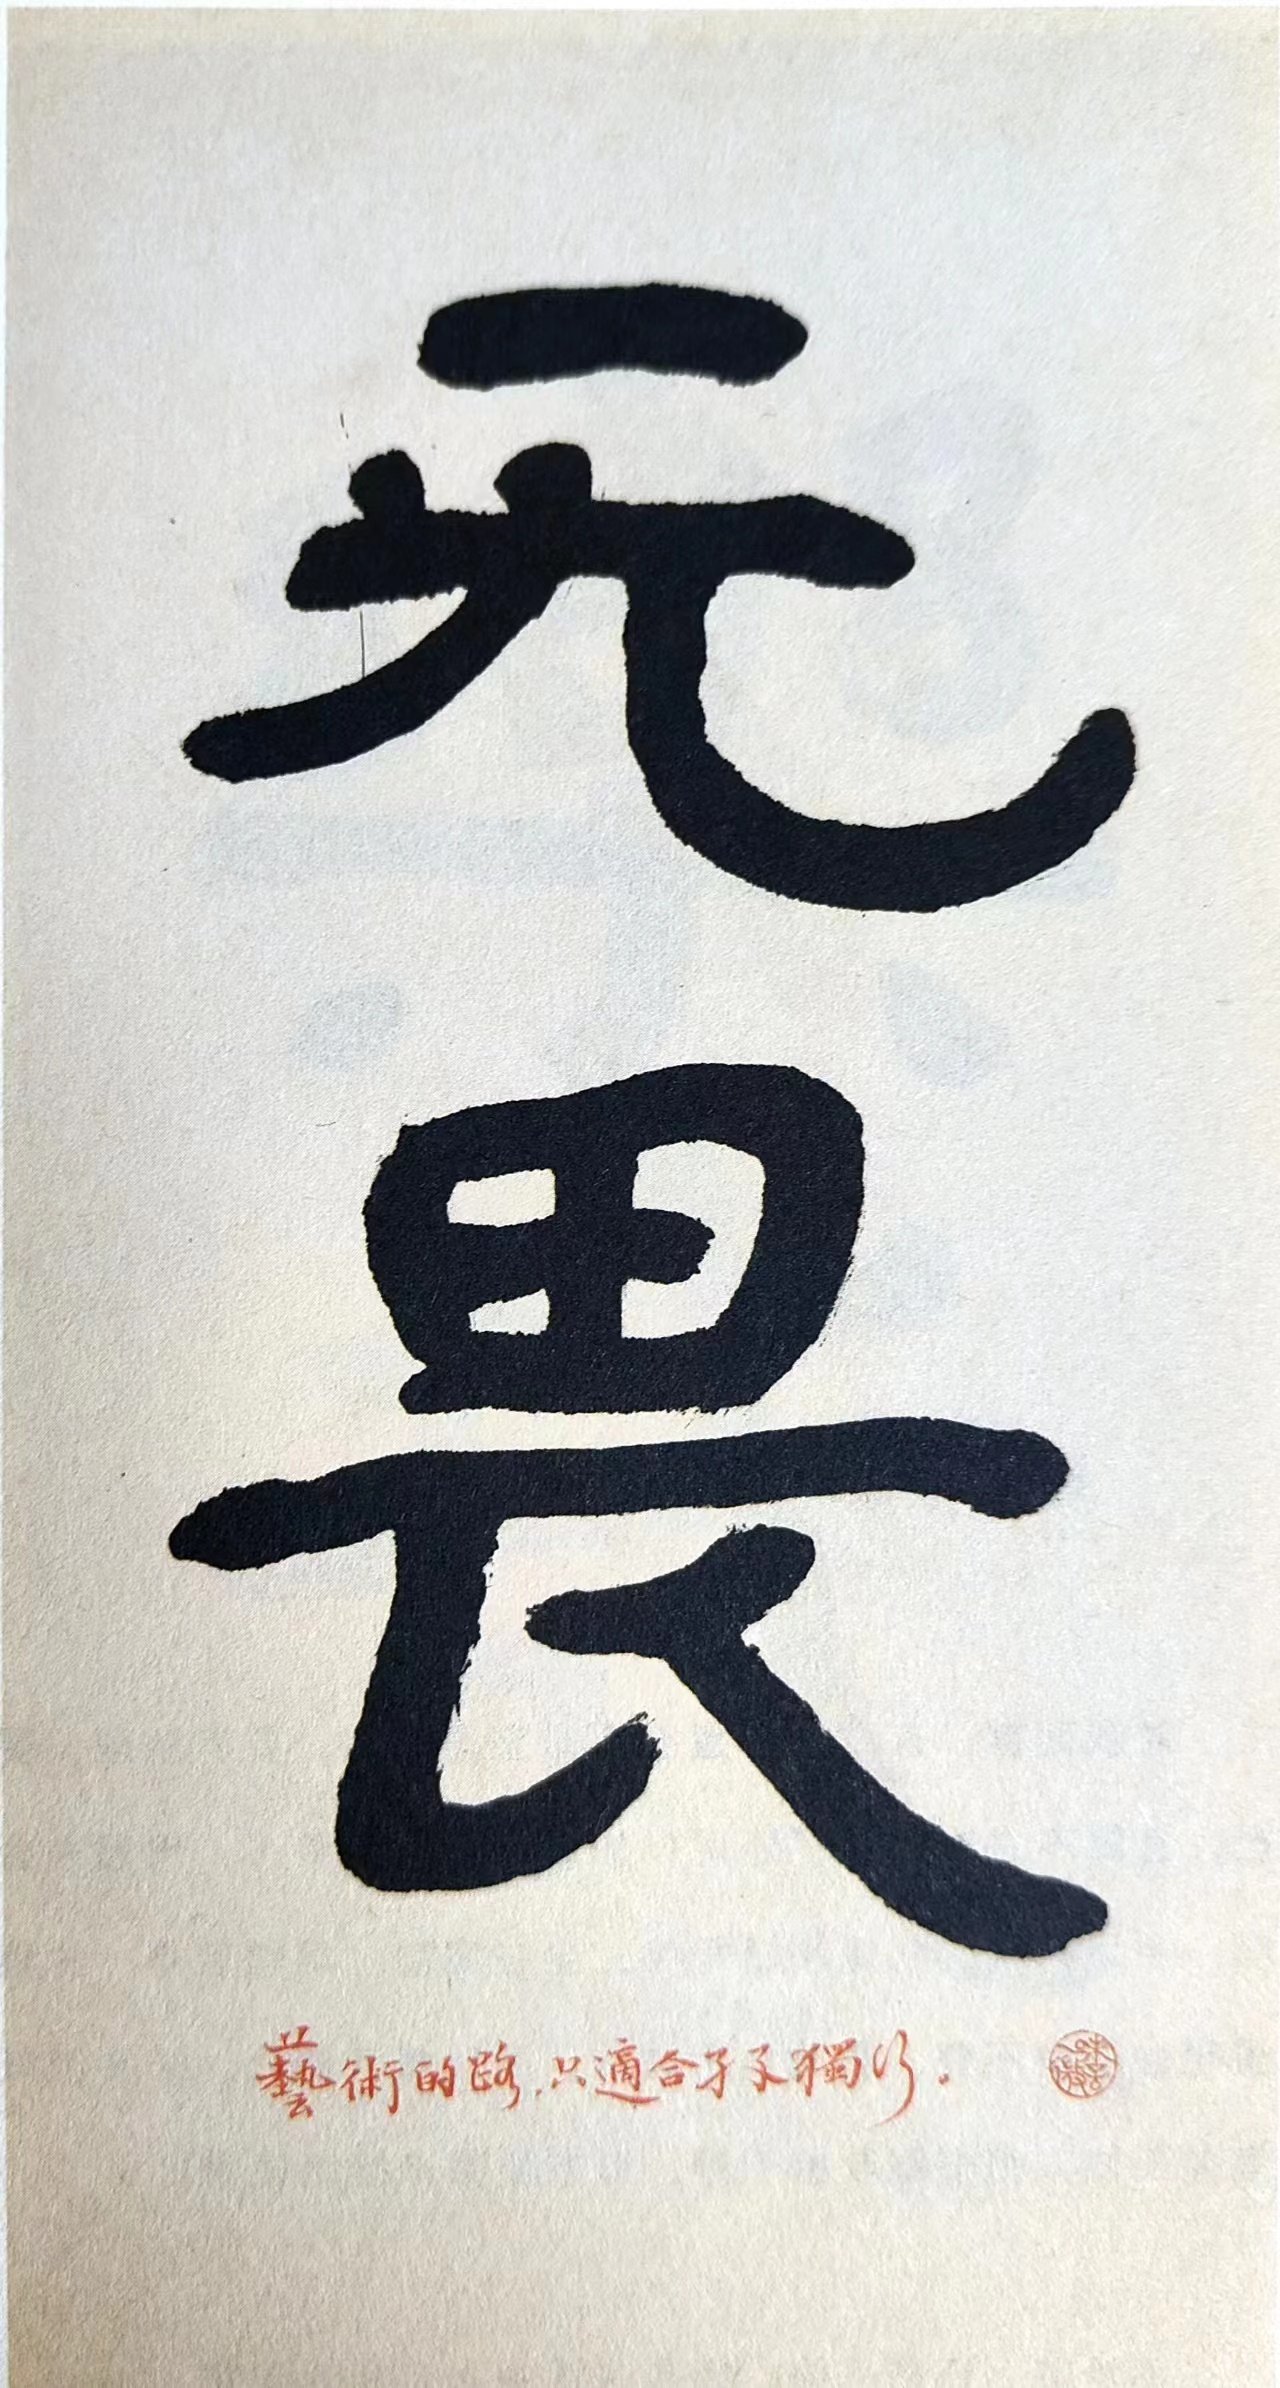 无
畏
藝術的路，只適合孑孓獨行。